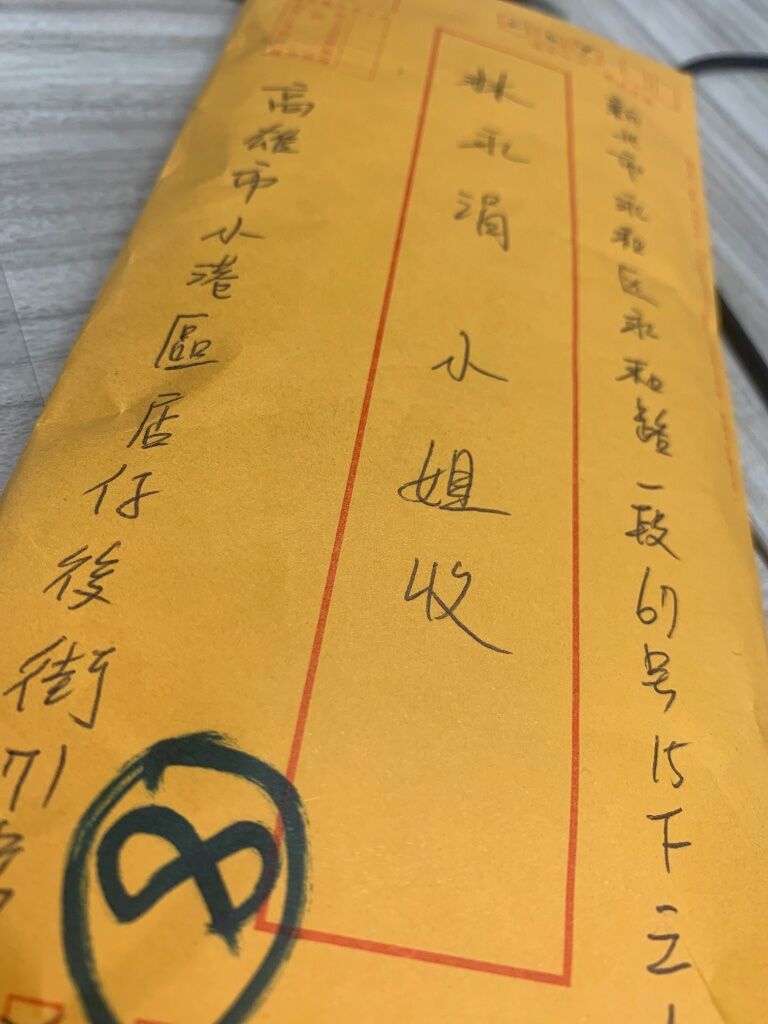 新北市永和区永和路一段67号15下之1
林永涓 小姐收
高雄市小港區店仔後街71号
8